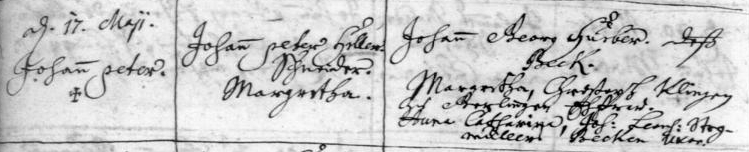 d. 17. Maÿ.
Johañ peter.
Johañ peter Hiller.
Schneider.
Margretha.
Johañ Georg Hürber. deß
Beck.
Margretha, Christoph Klingen
Ehefrau.
Anna Catharina, Joh: Leonh: Steg-
müller Becken Uxor.